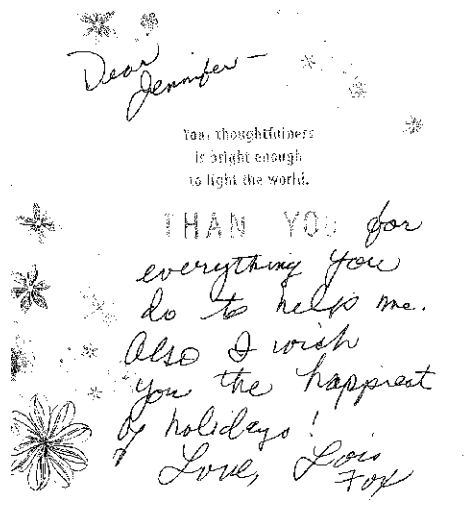 Dear
Jennifer—
Your thoughtfulness
is bright enough
to light the world.
THAN YOU for
everything you
do to help me.
Also I wish
you the happiest
of holidays!
Love, Lois
Fox